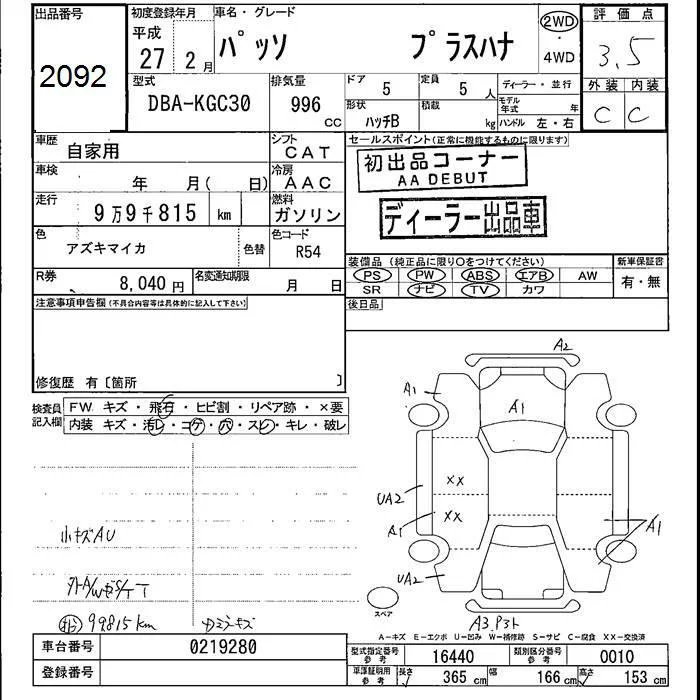 出品番号
2092
初度登録年月
平成
27 2月
車名・グレード
パッソ プラスハナ
2WD
4WD
評価点
3.5
型式
DBA-KGC30
排気量
996 cc
ドア
5
定員
5 人
形状
ハッチB
積載
kg
ディーラー・並行
モデル年式 年
ハンドル 左・右
外装 内装
C C
車歴
自家用
シフト
CAT
車検
年 月( 日)
冷房
AAC
走行
9万9千815 km
燃料
ガソリン
色
アズキマイカ
色替
色コード
R54
R券
8,040 円
名変通知期限
月 日
セールスポイント(正常に機能するものに限ります)
初出品コーナー
AA DEBUT
ディーラー出品車
装備品(純正品に限り○をつけてください)
PS PW ABS エアB AW
SR ナビ TV カワ
新車保証書
有・無
後日品
注意事項申告欄(不具合内容等は具体的に記入して下さい)
修復歴 有〔箇所 〕
検査員記入欄
FW キズ・飛石・ヒビ割・リペア跡・×要
内装 キズ・汚レ・コゲ・穴・スレ・キレ・破レ
小キズAU
99815km
A2
A1
A1
XX
XX
UA2
A1
A1
UA2
スペア
A3.P3ト
A-キズ E-エクボ U-凹み W-補修跡 S-サビ C-腐食 XX-交換済
車台番号
0219280
登録番号
型式指定番号 参考
16440
類別区分番号 参考
0010
車庫証明用 参考
長さ 365 cm
幅 166 cm
高さ 153 cm